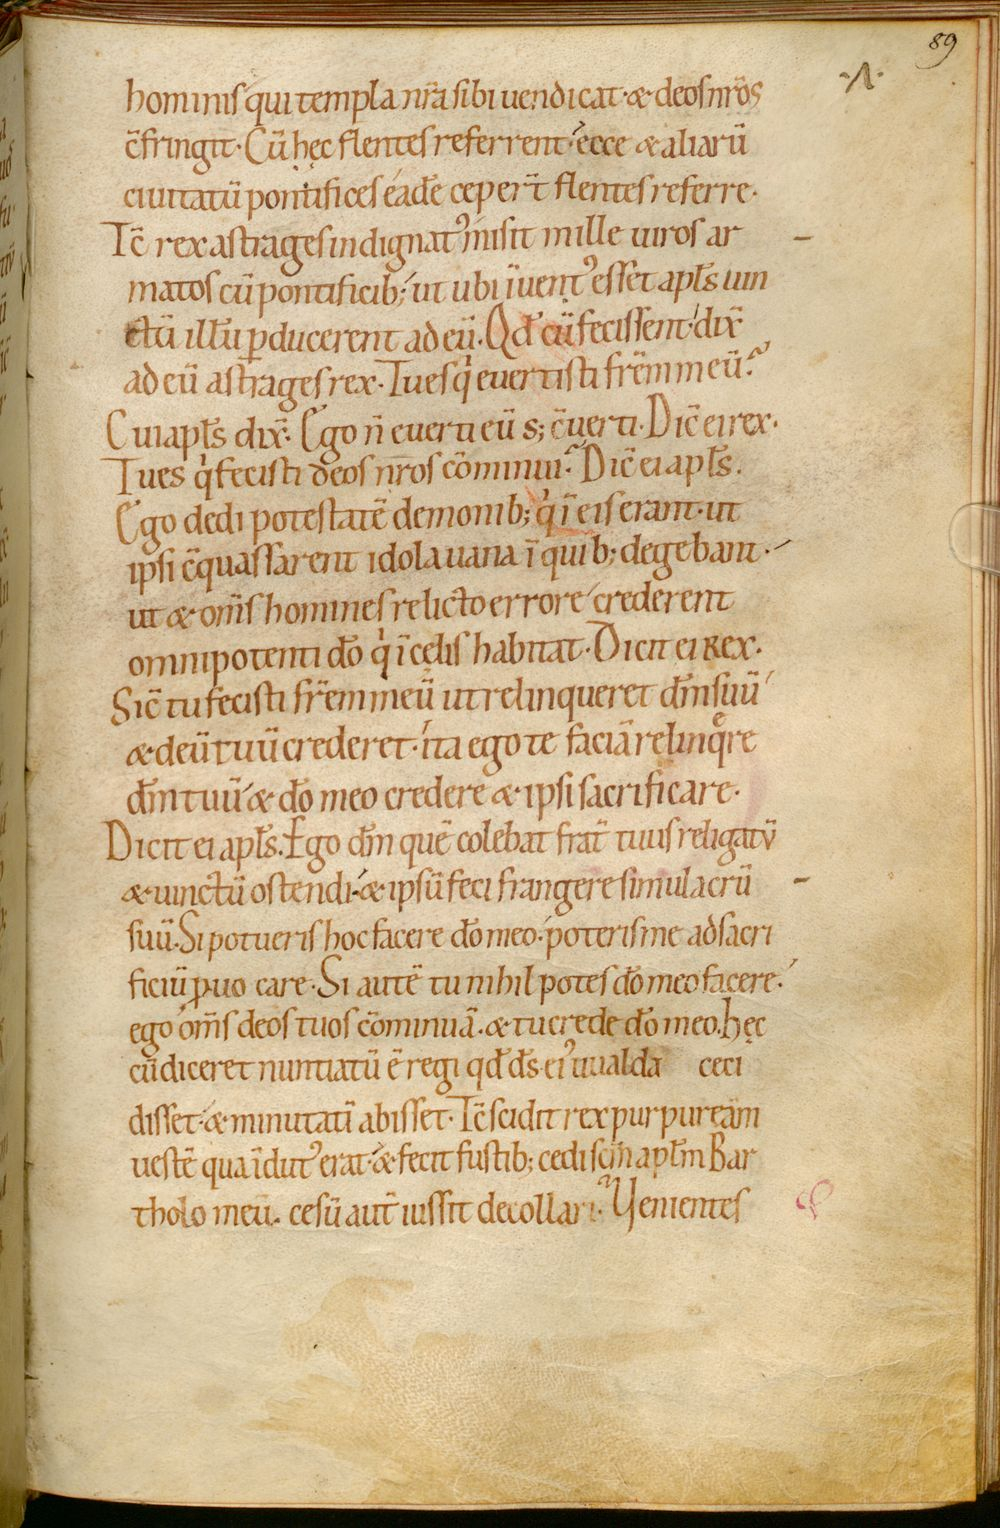 89
·Λ·
hominis qui templa nr̄a sibi uendicat· & deos nr̄os
c̄fringit· Cū hęc flentes referrent· ecce & aliarū
ciuitatū pontifices eadē ceper̄t flentes referre·
Tc̄ rex astrages indignatꝰ misit mille uiros ar
matos cū pontificib; ut ubi īuentꝰ esset apl̄s uin
ctū illū ꝑducerent ad eū· Qđ cū fecissent· dix̄
ad eū astrages rex· Tu es qⁱ euertisti fr̄em meū?
Cui apl̄s dix̄· Ego n̄ euerti eū s; c̄uerti· Dic̄ ei rex·
Tu es qⁱ fecisti deos nr̄os cōminui? Dic̄ ei apl̄s.
Ego dedi potestatē demonib; qⁱ ī eis erant· ut
ipsi c̄quassarent idola uana ī quib; degebant·
ut & om̄s homines relicto errore crederent
omnipotenti dō qⁱ ī cęlis habitat· Dicit ei rex·
Sic̄ tu fecisti fr̄em meū ut relinqueret dm̄ suū
& deū tuū crederet· ita ego te faciā relinqͤre
dm̄ tuū & dō meo credere & ipsi sacrificare·
Dicit ei apl̄s. Ego dm̄ quē colebat frat̄ tuus religatū
& uinctū ostendi· & ipsū feci frangere simulacrū
suū· Si potueris hoc facere dō meo· poteris me ad sacri
ficiū ꝓuocare· Si autē tu nihil potes dō meo facere·
ego om̄s deos tuos cōminuā· & tu crede dō meo. hęc
cū diceret nuntiatū ē regi qđ ds̄ eiꝰ uualda ceci
disset· & minutatī abisset· Tc̄ scidit rex purpuream
uestē qua īdutꝰ erat· & fecit fustib; cedi scm̄ aplm̄ Bar
tholomeū· cesū aut̄ iussit decollari· Uenientes